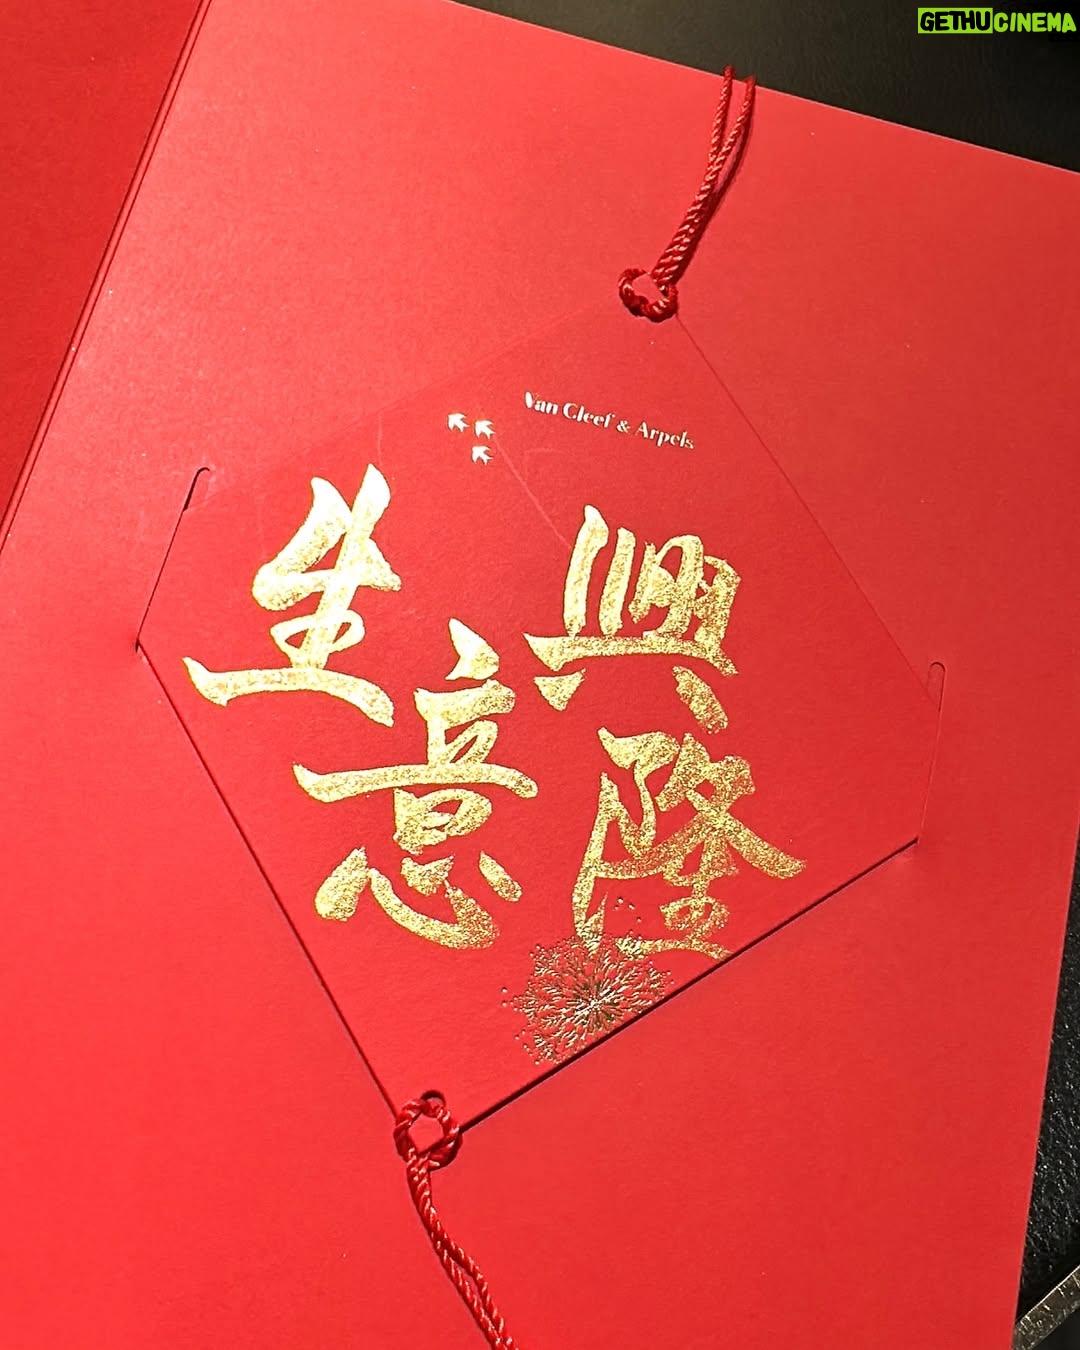 GETHUCINEMA
Van Cleef & Arpels
生意
興隆